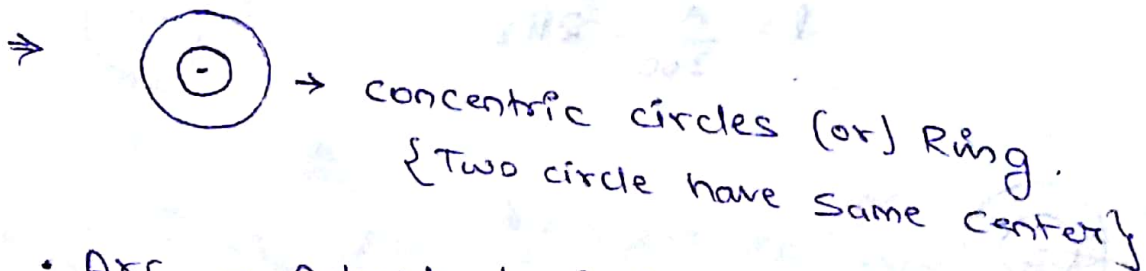 ⇒ → concentric circles (or) Ring.
{Two circle have same center}
• Arc